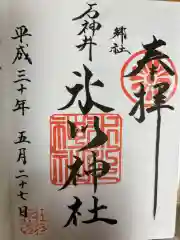 奉拝
郷社
石神井
氷川神社
平成三十年 五月二十七日